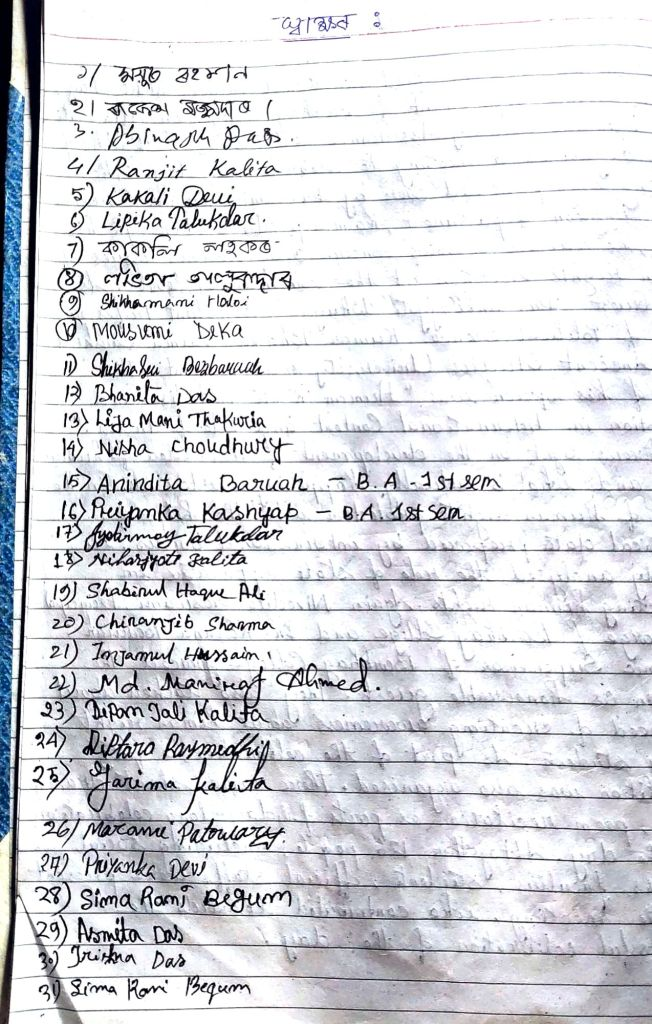 স্বাক্ষৰ :
1/ ৰহমান
2।
3. Abinash Das.
4/ Ranjit Kalita
5) Kakali Devi
6) Lipika Talukdar.
7) কাকলি লহকৰ
8)
9) Shikhamani Haloi
10) Mousumi Deka
11) Bezbaruah
12) Bhanita Das
13) Lija Mani Thakuria
14) Nisha Choudhury
15) Anindita Baruah - B.A - 1st sem
16) Priyanka Kashyap - B.A. 1st sem
17) Jyotirmoy Talukdar
18) Niharjyoti Kalita
19) Shabirul Haque Ali
20) Chiranjib Sharma
21) Injamul Hussain.
22) Md. Ahmed.
23) Kalita
24)
25) Garima Kalita
26) Marami Patowary.
27) Priyanka Devi
28) Sima Rani Begum
29) Asmita Das
30) Trishna Das
31) Sima Rani Begum